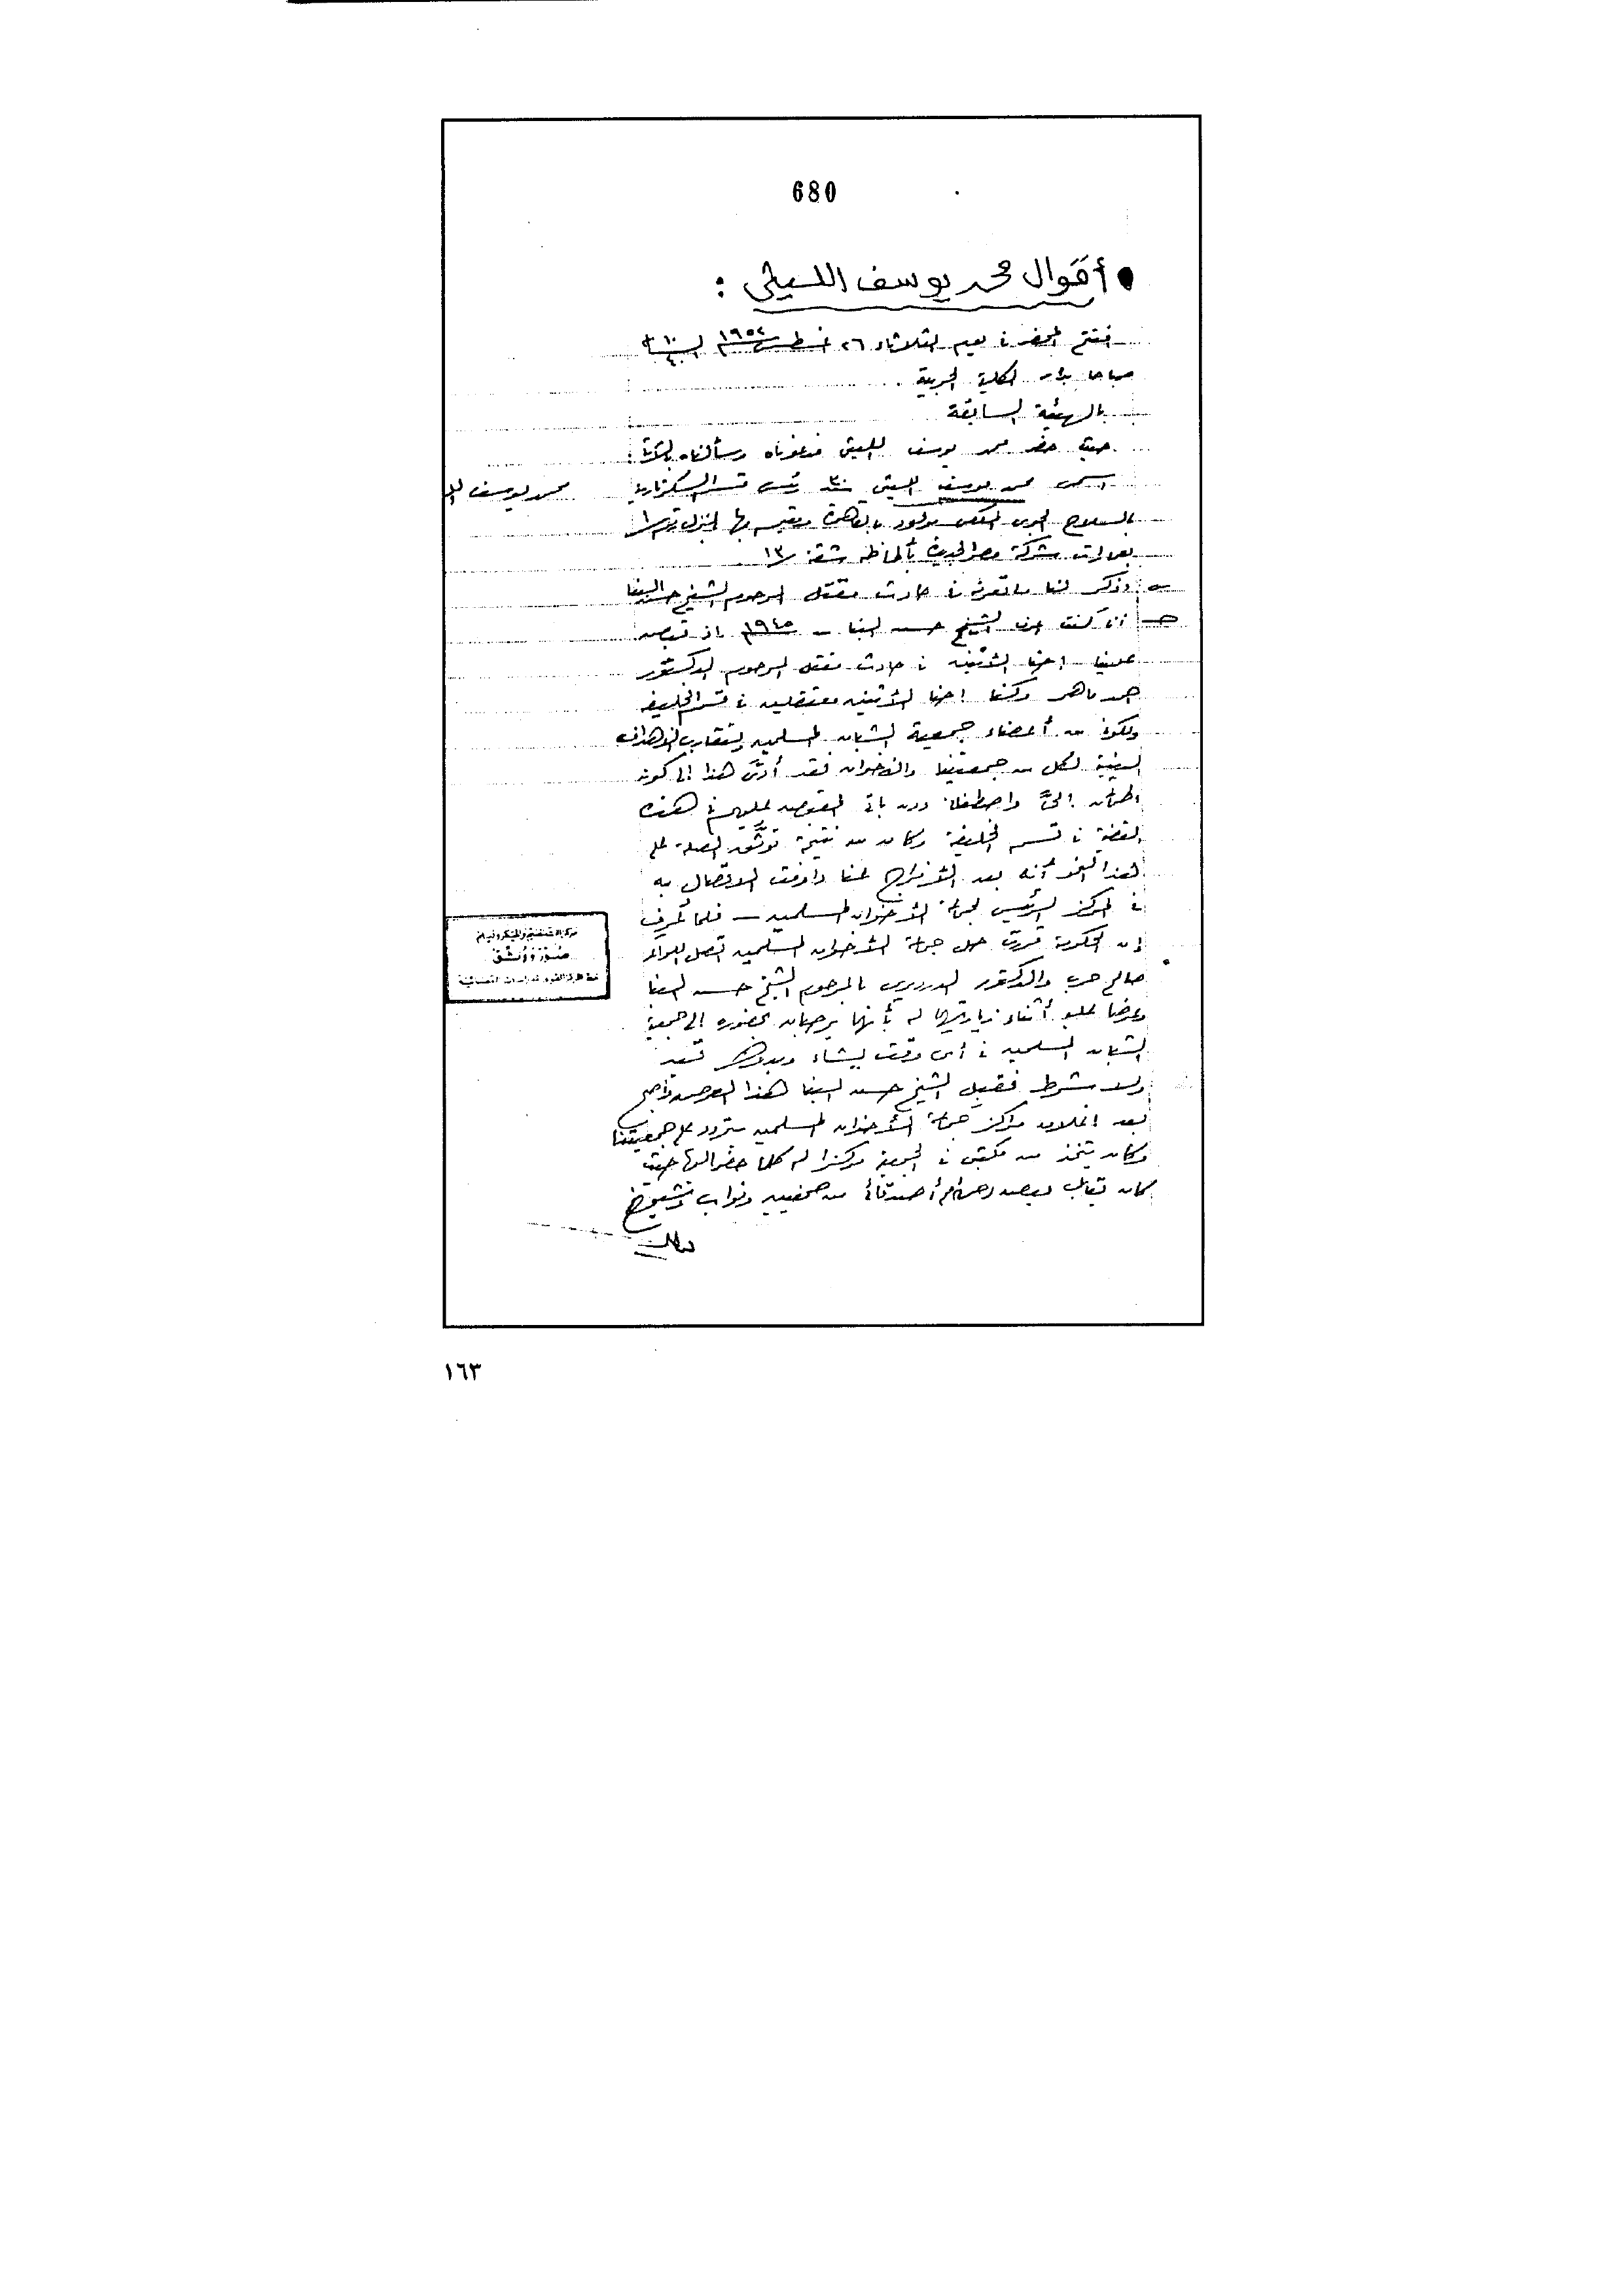 680
● أقوال محمد يوسف الليثى :
افتتح المحضر فى يوم الثلاثاء ٢٦ أغسطس ١٩٥٢ الساعة
صباحا بدار الكلية الحربية .
بالهيئة السابقة
حيث حضر محمد يوسف الليثى فدعوناه وسألناه بالآتى :
اسمى محمد يوسف الليثى سنى ٣٠ رئيس قسم السكرتارية
محمد يوسف الليـ
بالسلاح الجوى الملكى مولود بالقاهرة ومقيم بها بمنزل رقم ١
بعمارات شركة مصر الجديدة بألماظه شقة ١٣
س : اذكر لنا ما تعرفه فى حادث مقتل المرحوم الشيخ حسن البنا
جـ : أنا كنت أعرف الشيخ حسن البنا من ١٩٤٥ إذ قبض
علينا احنا الاثنين فى حادث مقتل المرحوم الدكتور
احمد ماهر وكنا احنا الاثنين معتقلين فى قسم الخليفة
ولكونى من أعضاء جمعية الشبان المسلمين ولتقارب الأهداف
الدينية لكل من جمعيتنا والاخوان فقد أدى هذا إلى كونه
اطمأن إلىّ واصطفانى دون باقى المقبوض عليهم فى هذه
القضية فى قسم الخليفة وكان من نتيجة توثّق الصلة على
هذا النحو أنه بعد الافراج عنا داومت الاتصال به
فى المركز الرئيسى لجماعة الأخوان المسلمين – فلما عُرِف
إن الحكومة قررت حل جماعة الأخوان المسلمين اتصل اللواء
صالح حرب والدكتور الدرديرى بالمرحوم الشيخ حسن البنا
وعرضا عليه أثناء زيارتهما له بأنهما يرحبان بحضوره إلى جمعية
الشبان المسلمين فى أى وقت يشاء وبدون قيد
ولا شرط فقبل الشيخ حسن البنا هذا العرض وأصبح
بعد إغلاق مراكز جماعة الأخوان المسلمين يتردد على جمعيتنا
وكان يتخذ من مكتبى فى الجمعية مركزا له كلما حضر إليها حيث
كان يقابل بعض أصدقائه من صحفيين ونواب وشيوخ
١٦٣